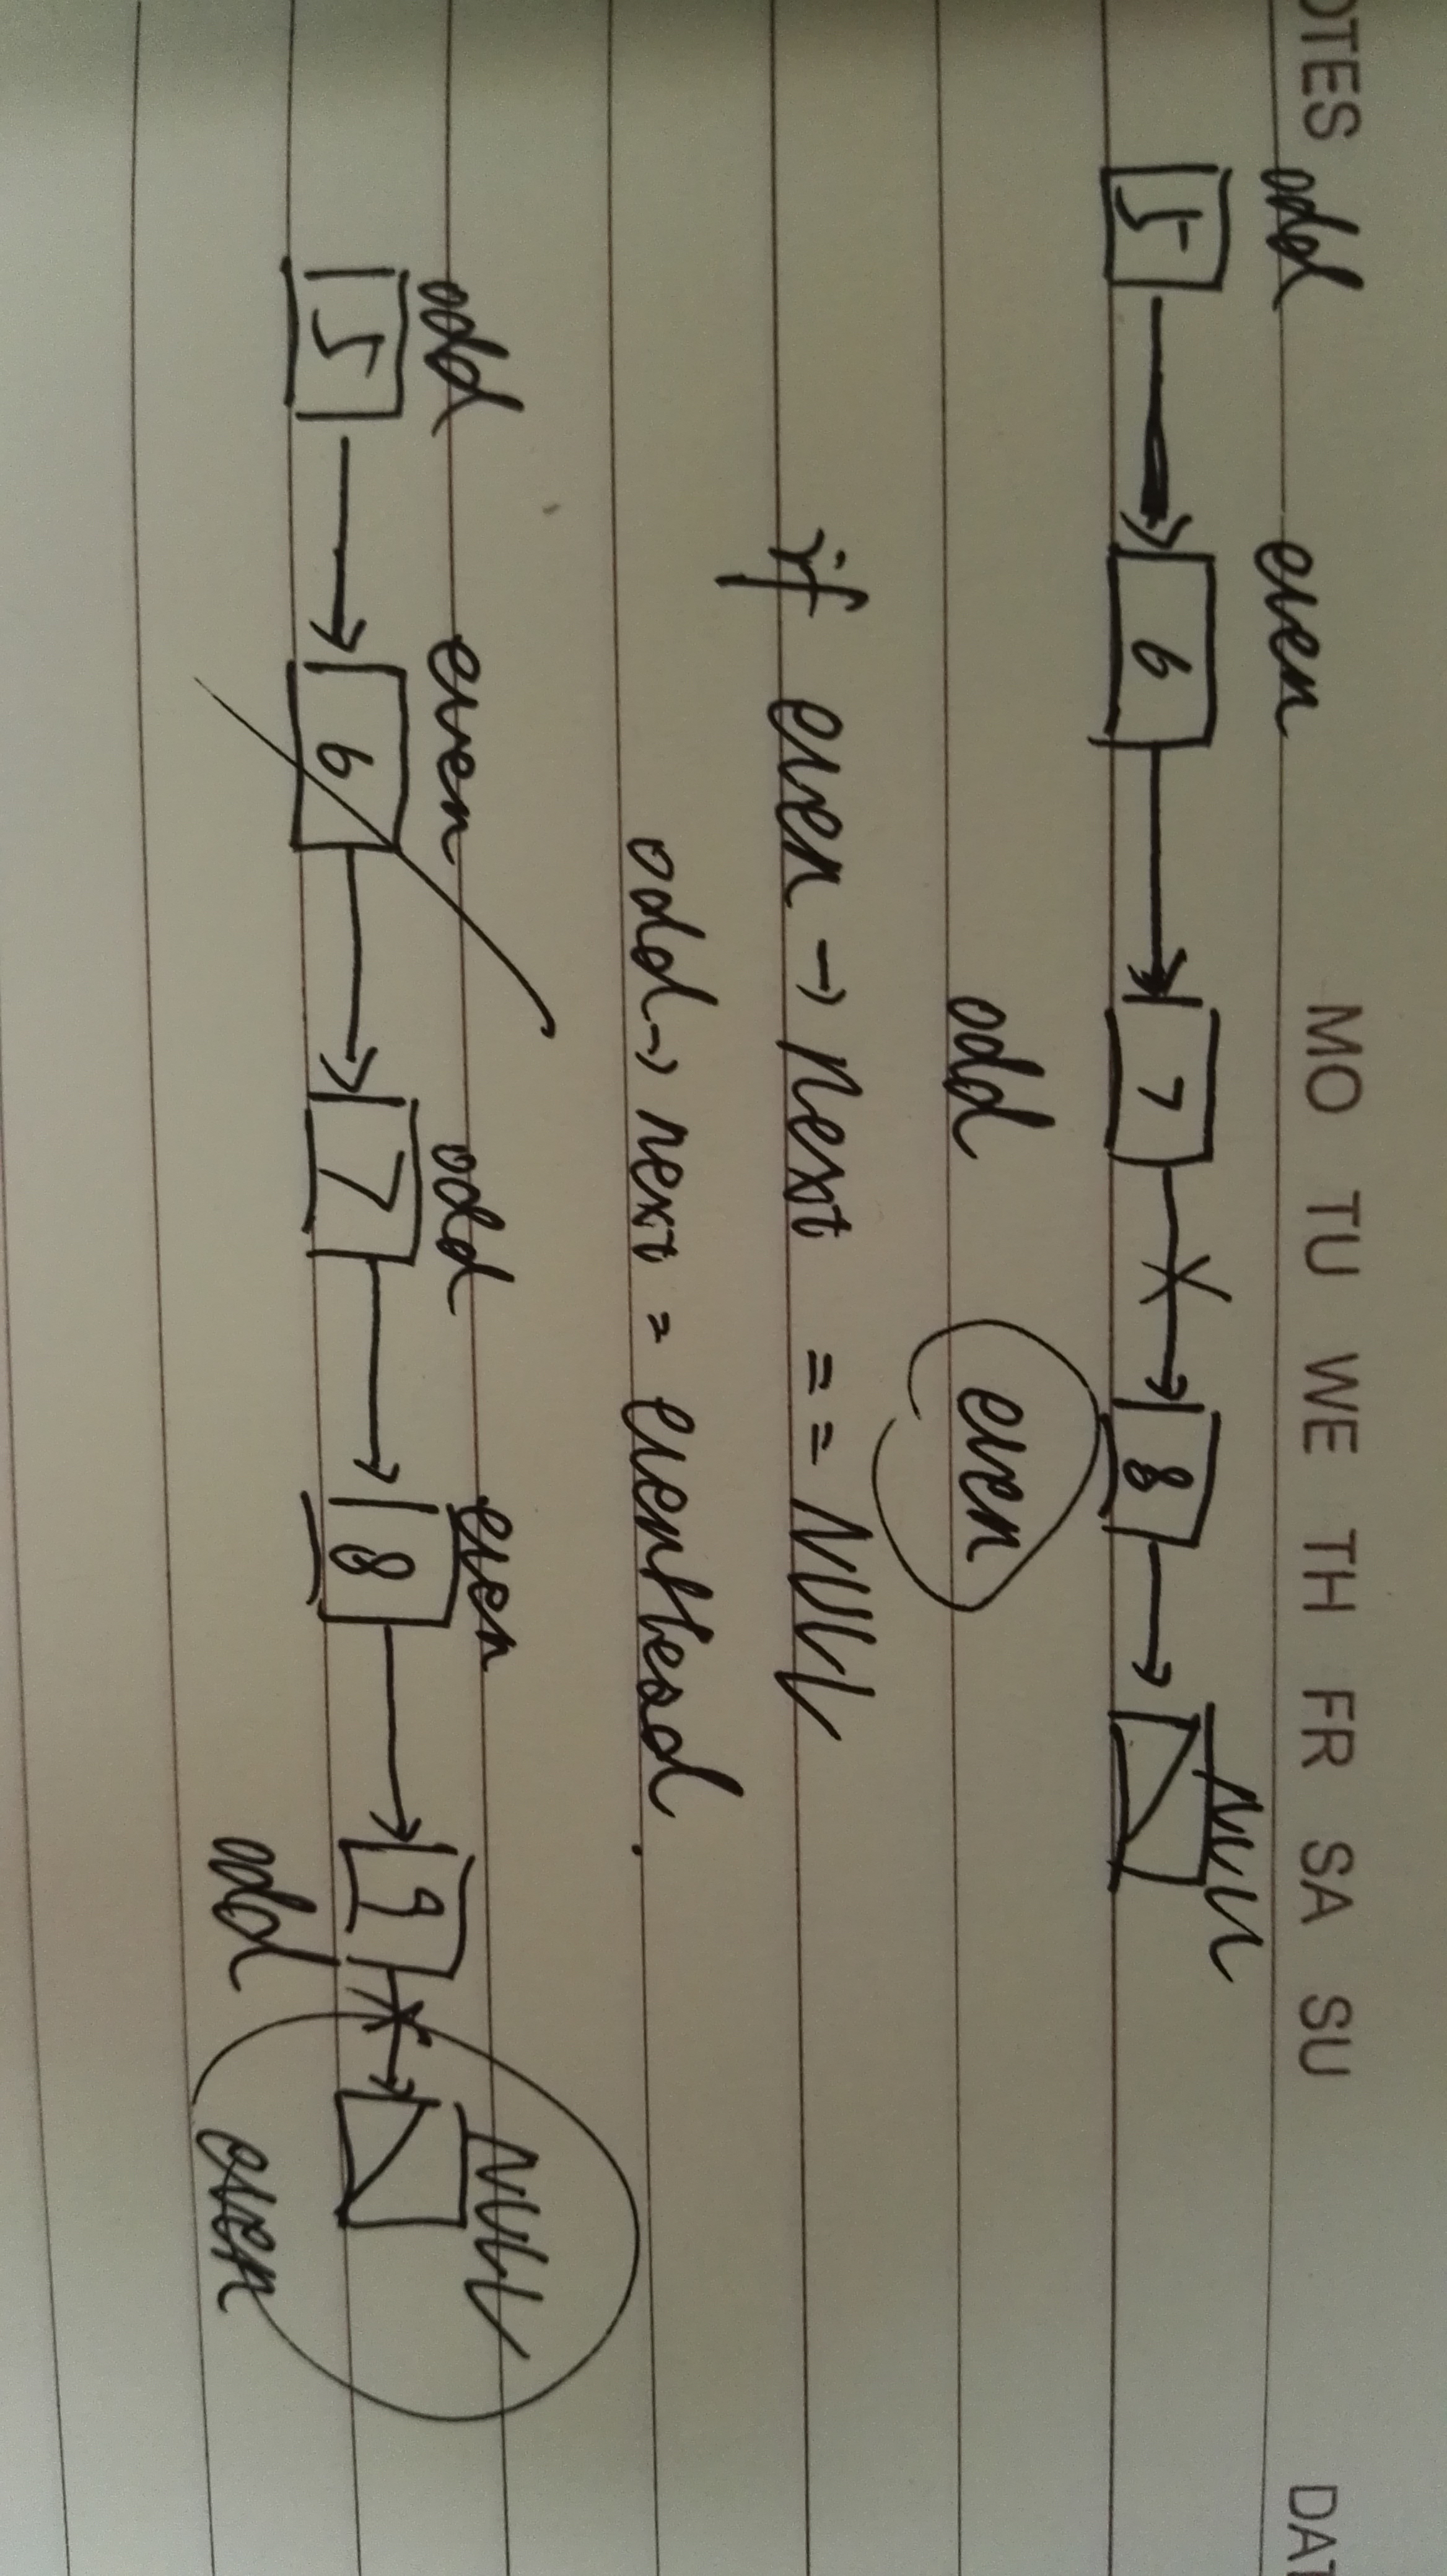 OTES MO TU WE TH FR SA SU DAT
odd even
NULL
5 6 7 8
odd even
if even → next == NULL
odd → next = evenHead.
odd even odd even NULL
5 6 7 8 9
odd even